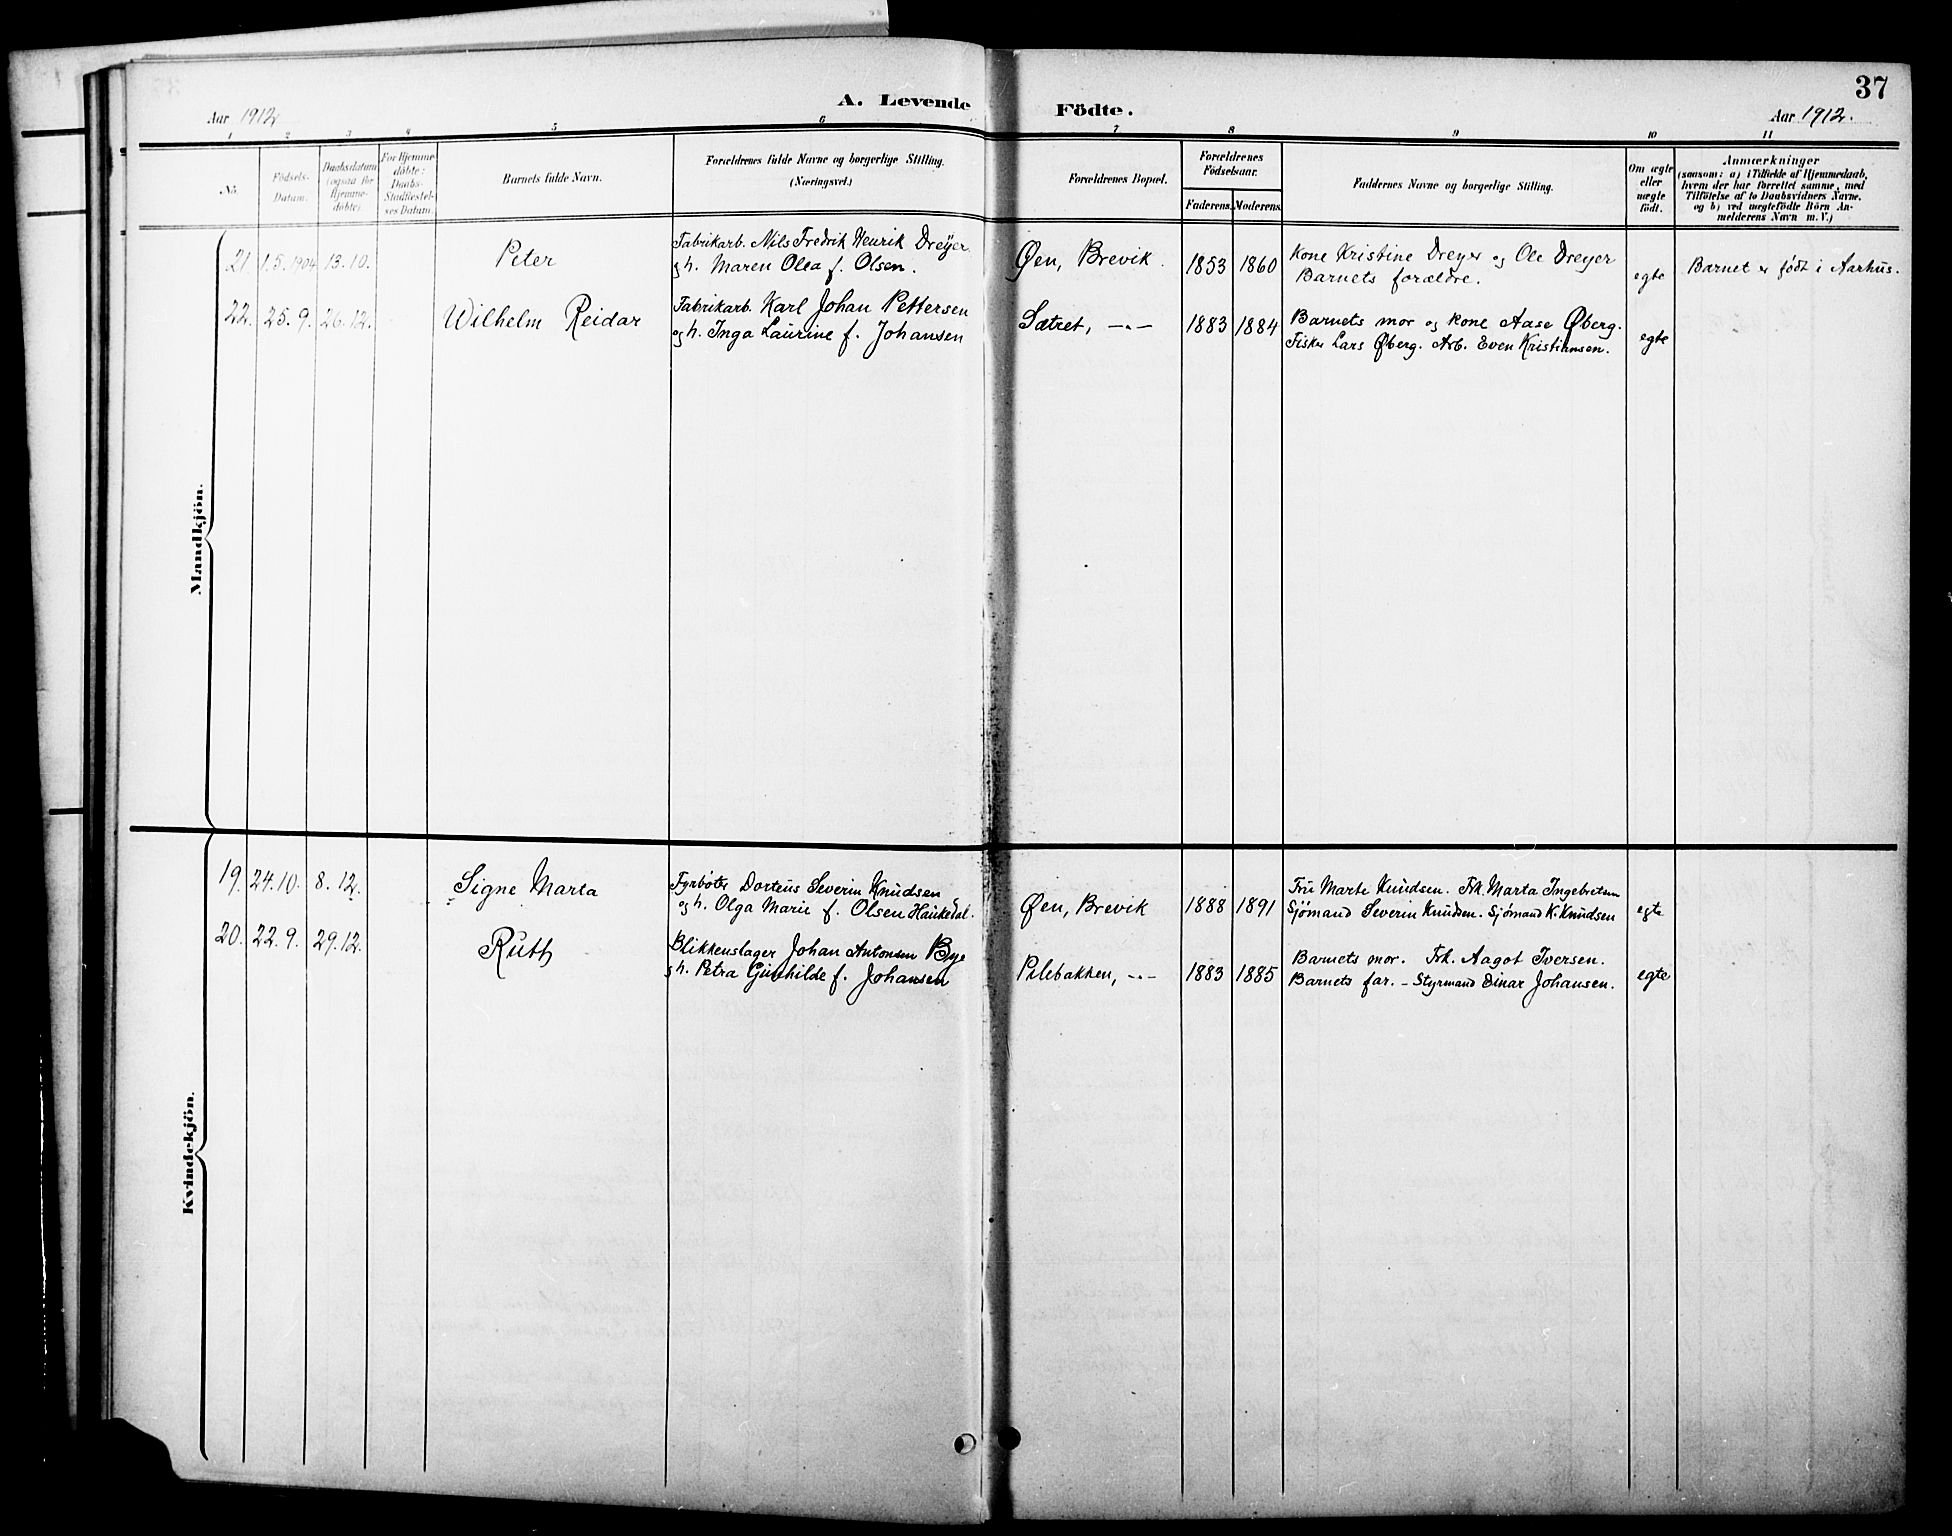 37
A. Levende Födte.
Aar 1912
Aar 1912.
1 2 3 4 5 6 7 8 9 10 11
No.
Födsels-
Datum.
Daabsdatum
(ogsaa for
Hjemme-
döbte).
For Hjemme-
döbte:
Daabs-
Stadfæstel-
ses Datum.
Barnets fulde Navn.
Forældrenes fulde Navne og borgerlige Stilling.
(Næringsvei.)
Forældrenes Bopæl.
Forældrenes
Födselsaar.
Faderens. Moderens.
Faddernes Navne og borgerlige Stilling.
Om ægte
eller
uægte
födt.
Anmærkninger
(saasom: a) i Tilfælde af Hjemmedaab,
hvem der har forrettet samme, med
Tilföielse af to Daabsvidners Navne,
og b) ved uægtefödte Börn An-
melderens Navn m. V.)
Mandkjön.
21 1.5.1904 13.10. Peter
Fabrikarb. Nils Fredrik Henrik Dreyer
og h. Maren Olea f. Olsen.
Øen, Brevik. 1853 1860
Kone Kristine Dreyer og Ole Dreyer
Barnets forældre.
egte
Barnet er født i Aarhus.
22. 25.9. 26.12. Wilhelm Reidar
Fabrikarb. Karl Johan Pettersen
og h. Inga Laurine f. Johansen
Sætret, -"- 1883 1884
Barnets mor og kone Aase Øberg.
Fisker Lars Øberg. Arb. Even Kristiansen.
egte
Kvindekjön.
19. 24.10. 8.12. Signe Marta
Fyrbøter Dorteus Severin Knudsen
og h. Olga Marie f. Olsen Haukedal.
Øen, Brevik 1888 1891
Fru Marte Knudsen. Frk. Marta Ingebretsen
Sjömand Severin Knudsen. Sjömand K. Knudsen
egte
20. 22.9. 29.12. Ruth
Blikkenslager Johan Antonsen Bye
og h. Petra Gunhilde f. Johansen
Pilebakken, -"- 1883 1885
Barnets mor. Frk. Aagot Iversen.
Barnets far. - Styrmand Einar Johansen.
egte